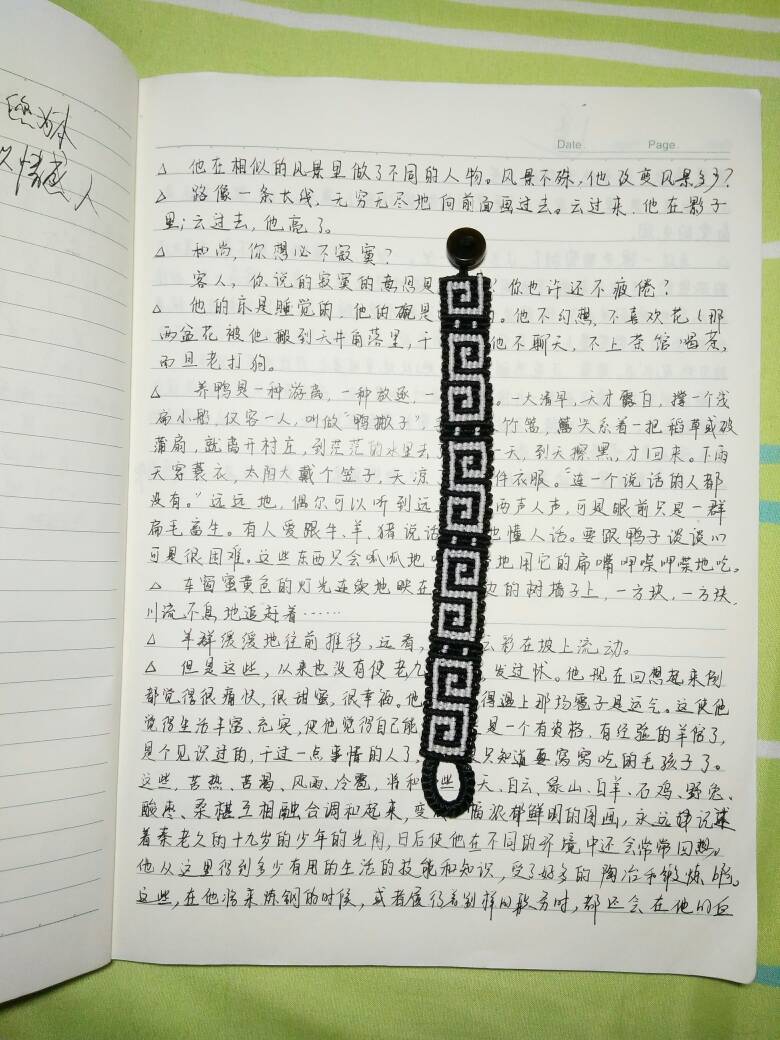 情感人
Date Page
△ 他在相似的风景里做了不同的人物。风景不殊,他改变风景多少?
△ 路像一条长线,无穷无尽地向前面画过去。云过来,他在影子
里;云过去,他亮了。
△ 和尚,你想必不寂寞?
客人,你说的寂寞的意思是 你也许还不疲倦?
△ 他的床是睡觉的,他的 。他不幻想,不喜欢花(那
两盆花被他搬到天井角落里,干 他不聊天,不上茶馆喝茶,
而且老打狗。
△ 养鸭是一种游离,一种放逐,一 。一大清早,天才露白,撑一个浅
扁小船,仅容一人,叫做“鸭撇子”, 竹篙,篙头系着一把稻草或破
蒲扇,就离开村庄,到茫茫的水里去了 一天,到天擦黑,才回来。下雨
天穿蓑衣,太阳大戴个笠子,天凉 件衣服。“连一个说话的人都
没有。”远远地,偶尔可以听到远 两声人声,可是眼前只是一群
扁毛畜生。有人爱跟牛、羊、猪说话 也懂人话。要跟鸭子谈谈心
可是很困难。这些东西只会呱呱地 地用它的扁嘴呷喋呷喋地吃。
△ 车窗蜜黄色的灯光连续地映在 边的树墙子上,一方块,一方块,
川流不息地追赶着……
△ 羊群缓缓地往前推移,远看, 云彩在坡上流动。
△ 但是这些,从来也没有使老九 发过怵。他现在回想起来倒
都觉得很痛快,很甜蜜,很幸福。他 得遇上那场雹子是运气。这使他
觉得生活丰富、充实,使他觉得自己能 是一个有资格,有经验的羊倌了,
是个见识过的,干过一点事情的人了, 只知道要窝窝吃的毛孩子了。
这些,苦热、苦渴、风雨、冷雹,将和 些 天、白云、绿山、白羊、石鸡、野兔、
酸枣、桑椹互相融合调和起来,变 幅浓郁鲜明的图画,永远标记
着秦老九的十九岁的少年的光阴,日后使他在不同的环境中还会常常回想。
他从这里得到多少有用的生活的技能和知识,受了好多的陶冶和锻炼啊。
这些,在他将来炼钢的时候,或者履行着别样的职务时,都还会在他的血